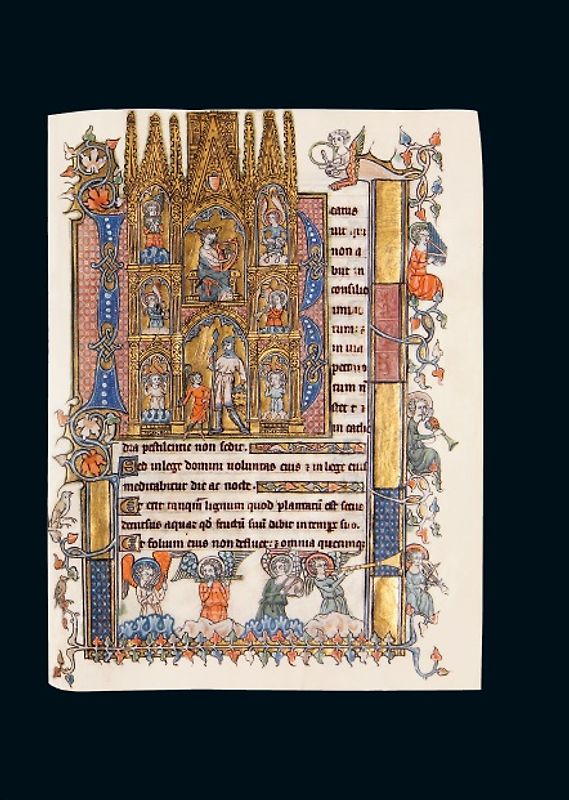 eatus
uir qui
non a
biit in
consilio
impio
rum: ⁊
in uia
pecca
rum nō
stetit ⁊
in cathe
dra pestilentie non sedit.
Sed in lege domini uoluntas eius ⁊ in lege eius
meditabitur die ac nocte.
Et erit tanqm̄ lignum quod plantatū est secus
decursus aquar qd̄ fructū suū dabit in tempe suo.
Et folium eius non defluet: ⁊ omnia quecunq;